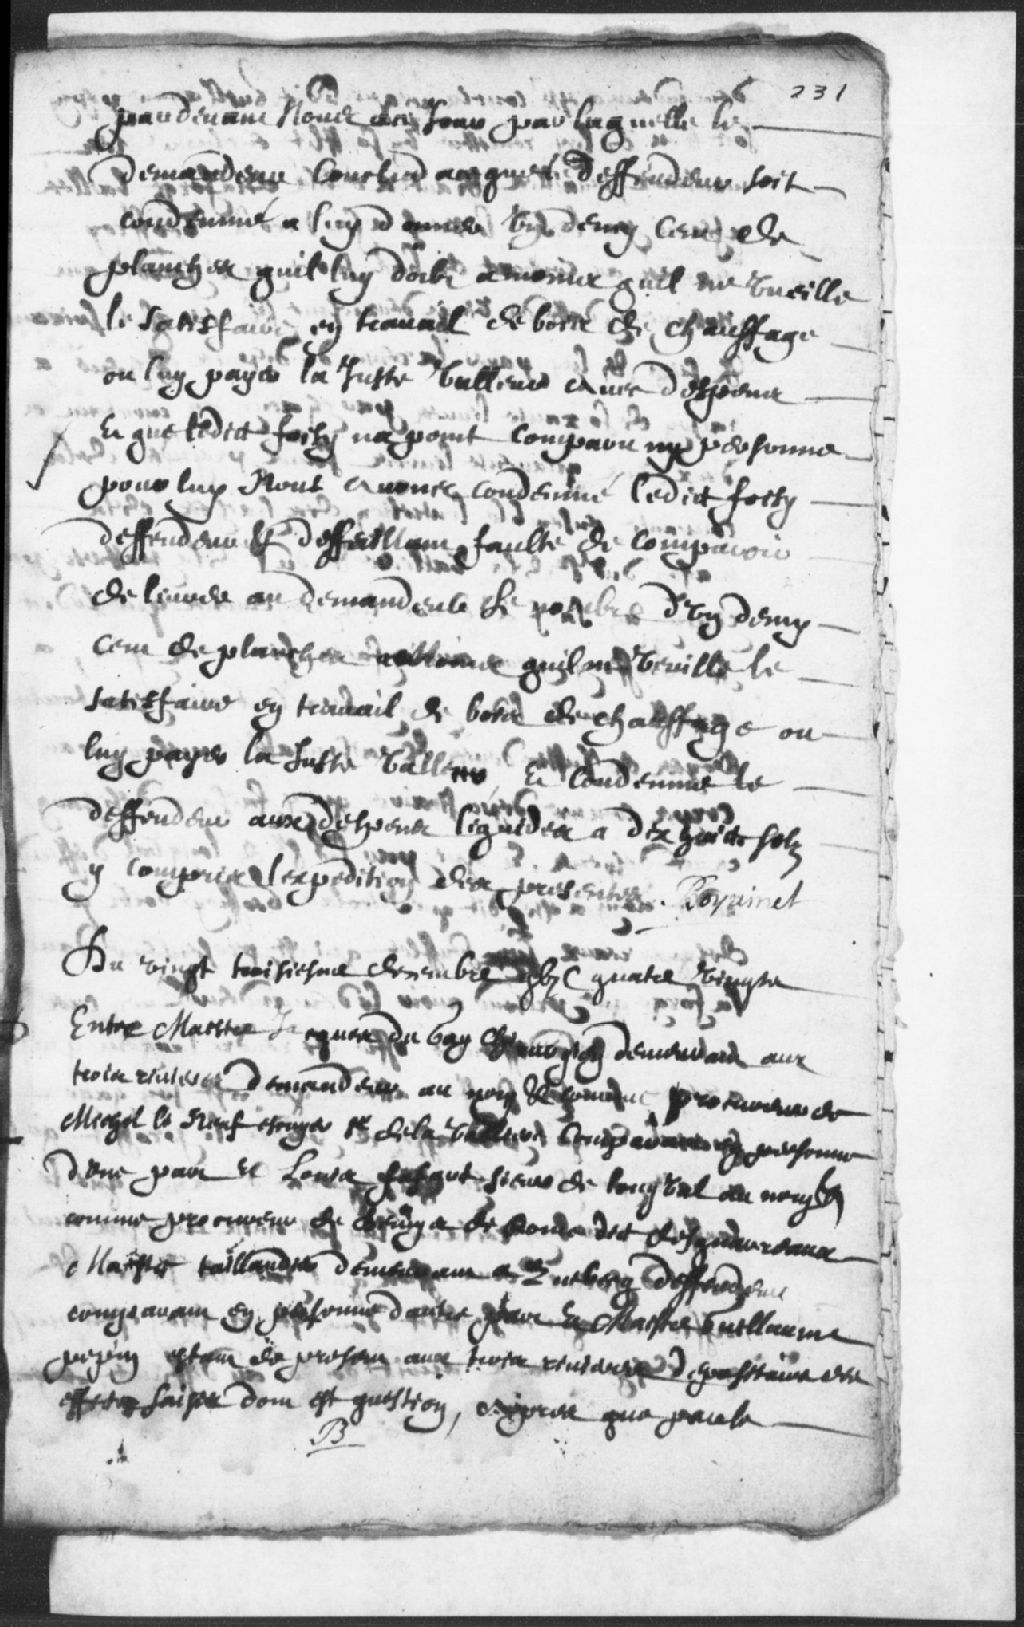 231
pardevant Nous ce jour par laquelle le
demandeur conclud acque le deffendeur soit
condemné a luy donner Un demy Cent de
planches quil luy doibt amoins quil ne Vueille
le satisfaire en travail de bois de chauffage
ou luy payer la Juste Valleur avec despens
Et que ledict foisy na point comparu ny personne
pour luy Nous avons condemné ledict foisy
deffendeur et deffaillant faulte de comparoir
de livrer au demandeur le nombre d'Un demy
Cent de planches amoins quil ne Veuille le
satisfaire en travail de bois de chauffage ou
luy payer la Juste Valleur Et Condemné le
deffendeur aux despens liquidez a dix huict solz
y compris lexpedition des presentes. Boyvinet
Du vingt troisiesme decembre gbjC quatre Vingts
Entre Maistre Jacques du Gay Chirurgien demeurant aux
trois rivieres demandeur au nom et comme procureur de
Michel le Neuf escuyer sr de la Valliere Comparant en personne
d'Une part Et Louis sieur de longval au nom
comme procureur de de dict desgaudreaux
Maistre taillandier demeurant a Quebecq deffendeur
comparant en personne dautre part Et Maistre Guillaume
pepin estant de present aux trois rivieres depositaire des
effets saisis dont est question, Apres que par le
B